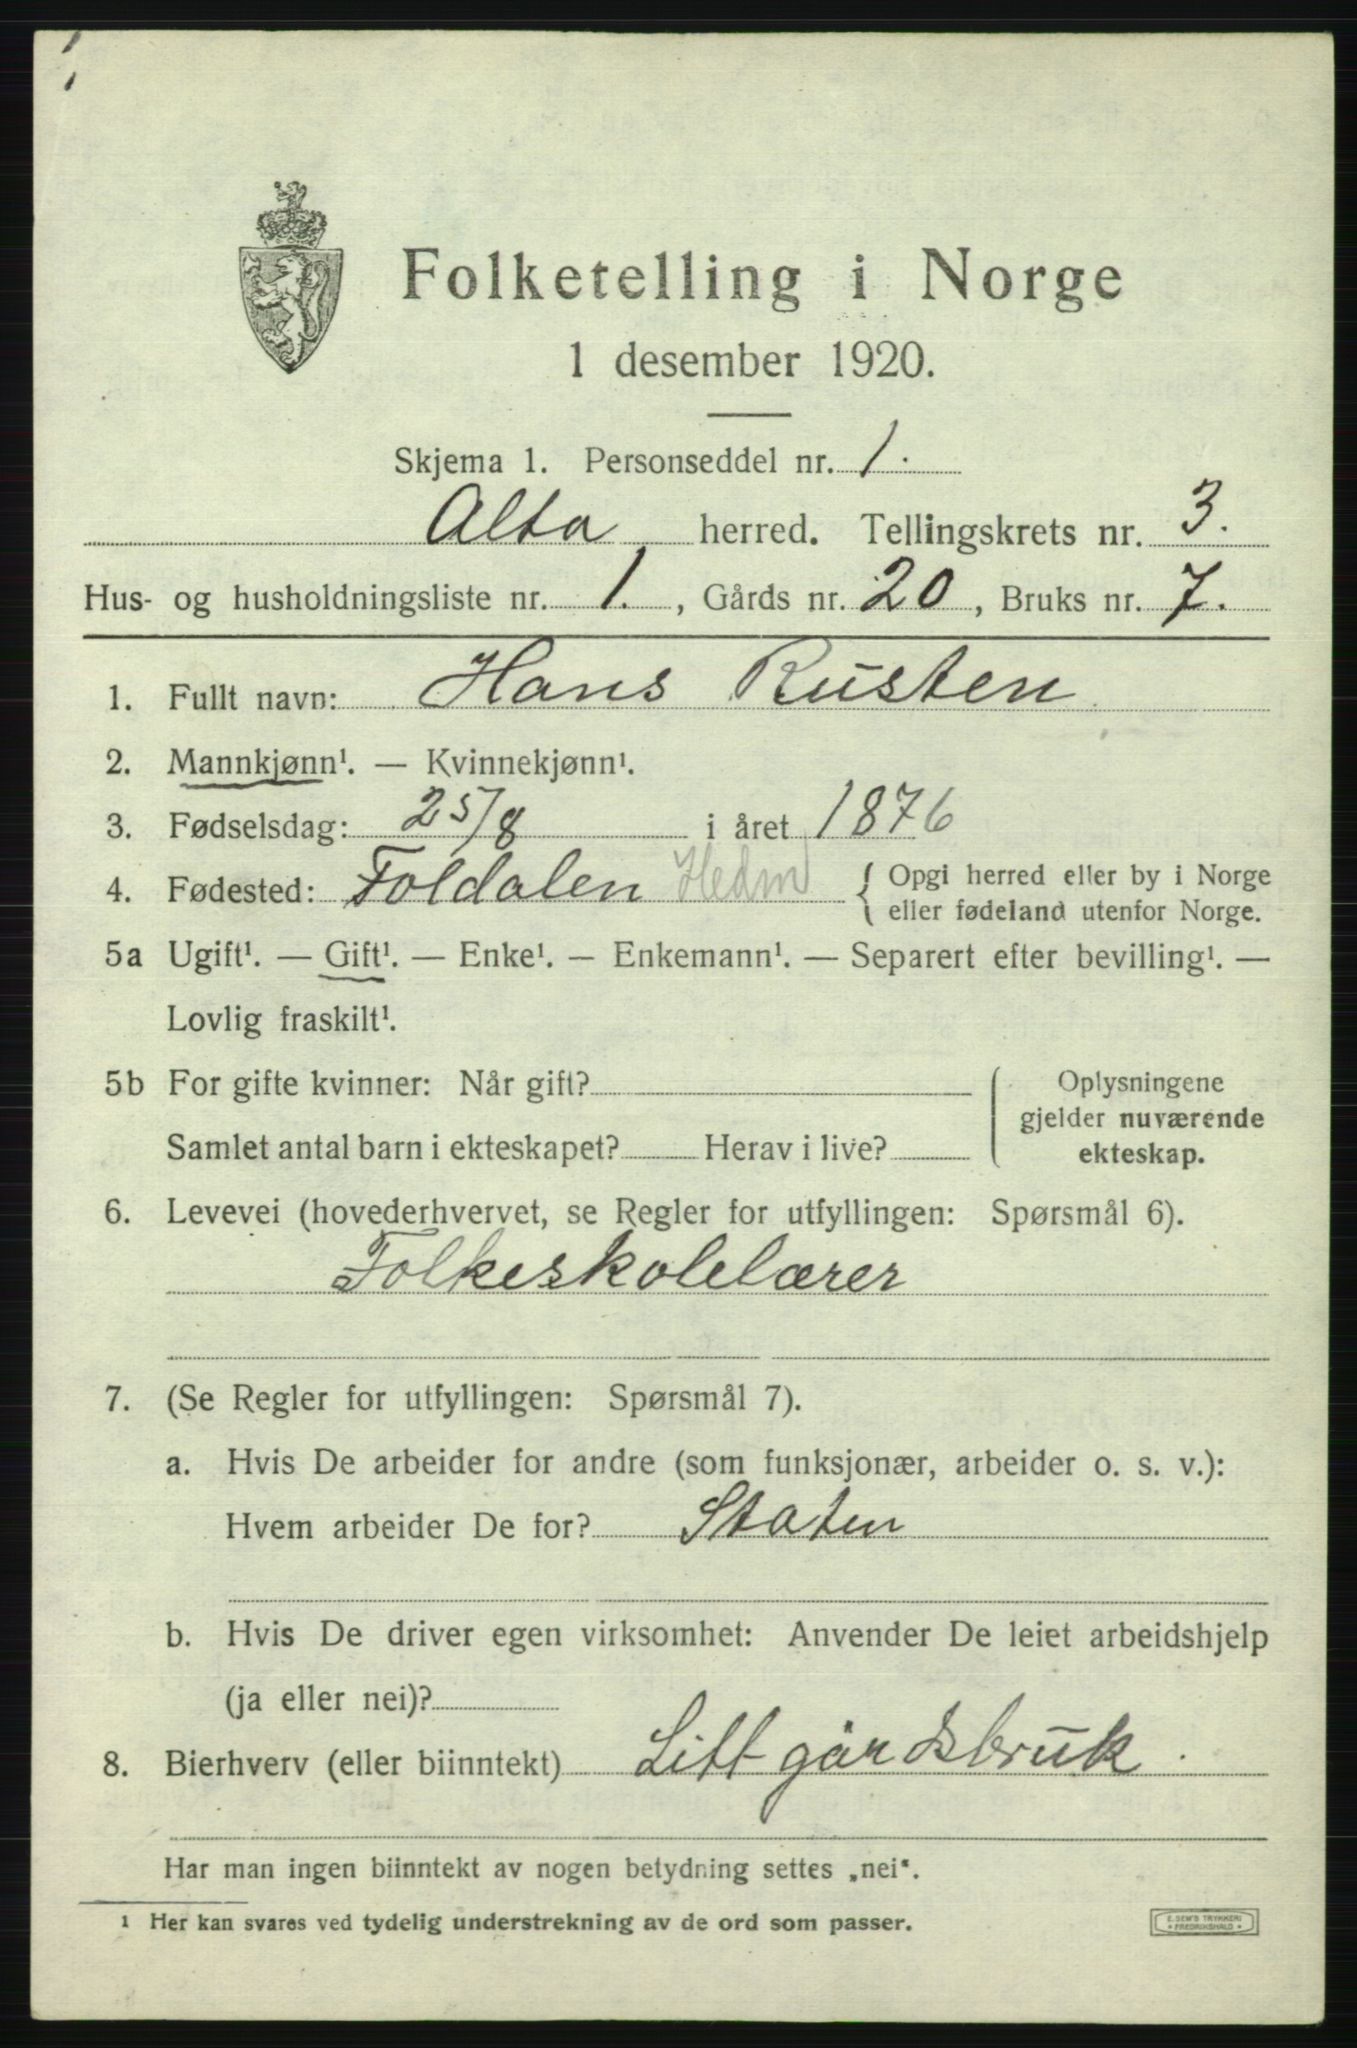 Folketelling i Norge
1 desember 1920.
Skjema 1. Personseddel nr. 1.
Alta herred. Tellingskrets nr. 3.
Hus- og husholdningsliste nr. 1. , Gårds nr. 20 , Bruks nr. 7.
1. Fullt navn: Hans Rusten
2. Mannkjønn¹. — Kvinnekjønn¹.
3. Fødselsdag: 25/8 i året 1876
4. Fødested: Foldalen Hedm { Opgi herred eller by i Norge
eller fødeland utenfor Norge.
5a Ugift¹. — Gift¹. — Enke¹. — Enkemann¹. — Separert efter bevilling¹. —
Lovlig fraskilt¹.
5b For gifte kvinner: Når gift?
Samlet antal barn i ekteskapet? Herav i live?
Oplysningene
gjelder nuværende
ekteskap.
6. Levevei (hovederhvervet, se Regler for utfyllingen: Spørsmål 6).
Folkeskolelærer
7. (Se Regler for utfyllingen: Spørsmål 7).
a. Hvis De arbeider for andre (som funksjonær, arbeider o. s. v.):
Hvem arbeider De for? Staten
b. Hvis De driver egen virksomhet: Anvender De leiet arbeidshjelp
(ja eller nei)?
8. Bierhverv (eller biinntekt) Litt gårdsbruk.
Har man ingen biinntekt av nogen betydning settes „nei".
¹ Her kan svares ved tydelig understrekning av de ord som passer.
E. SEM'S TRYKKERI
FREDRIKSHALD